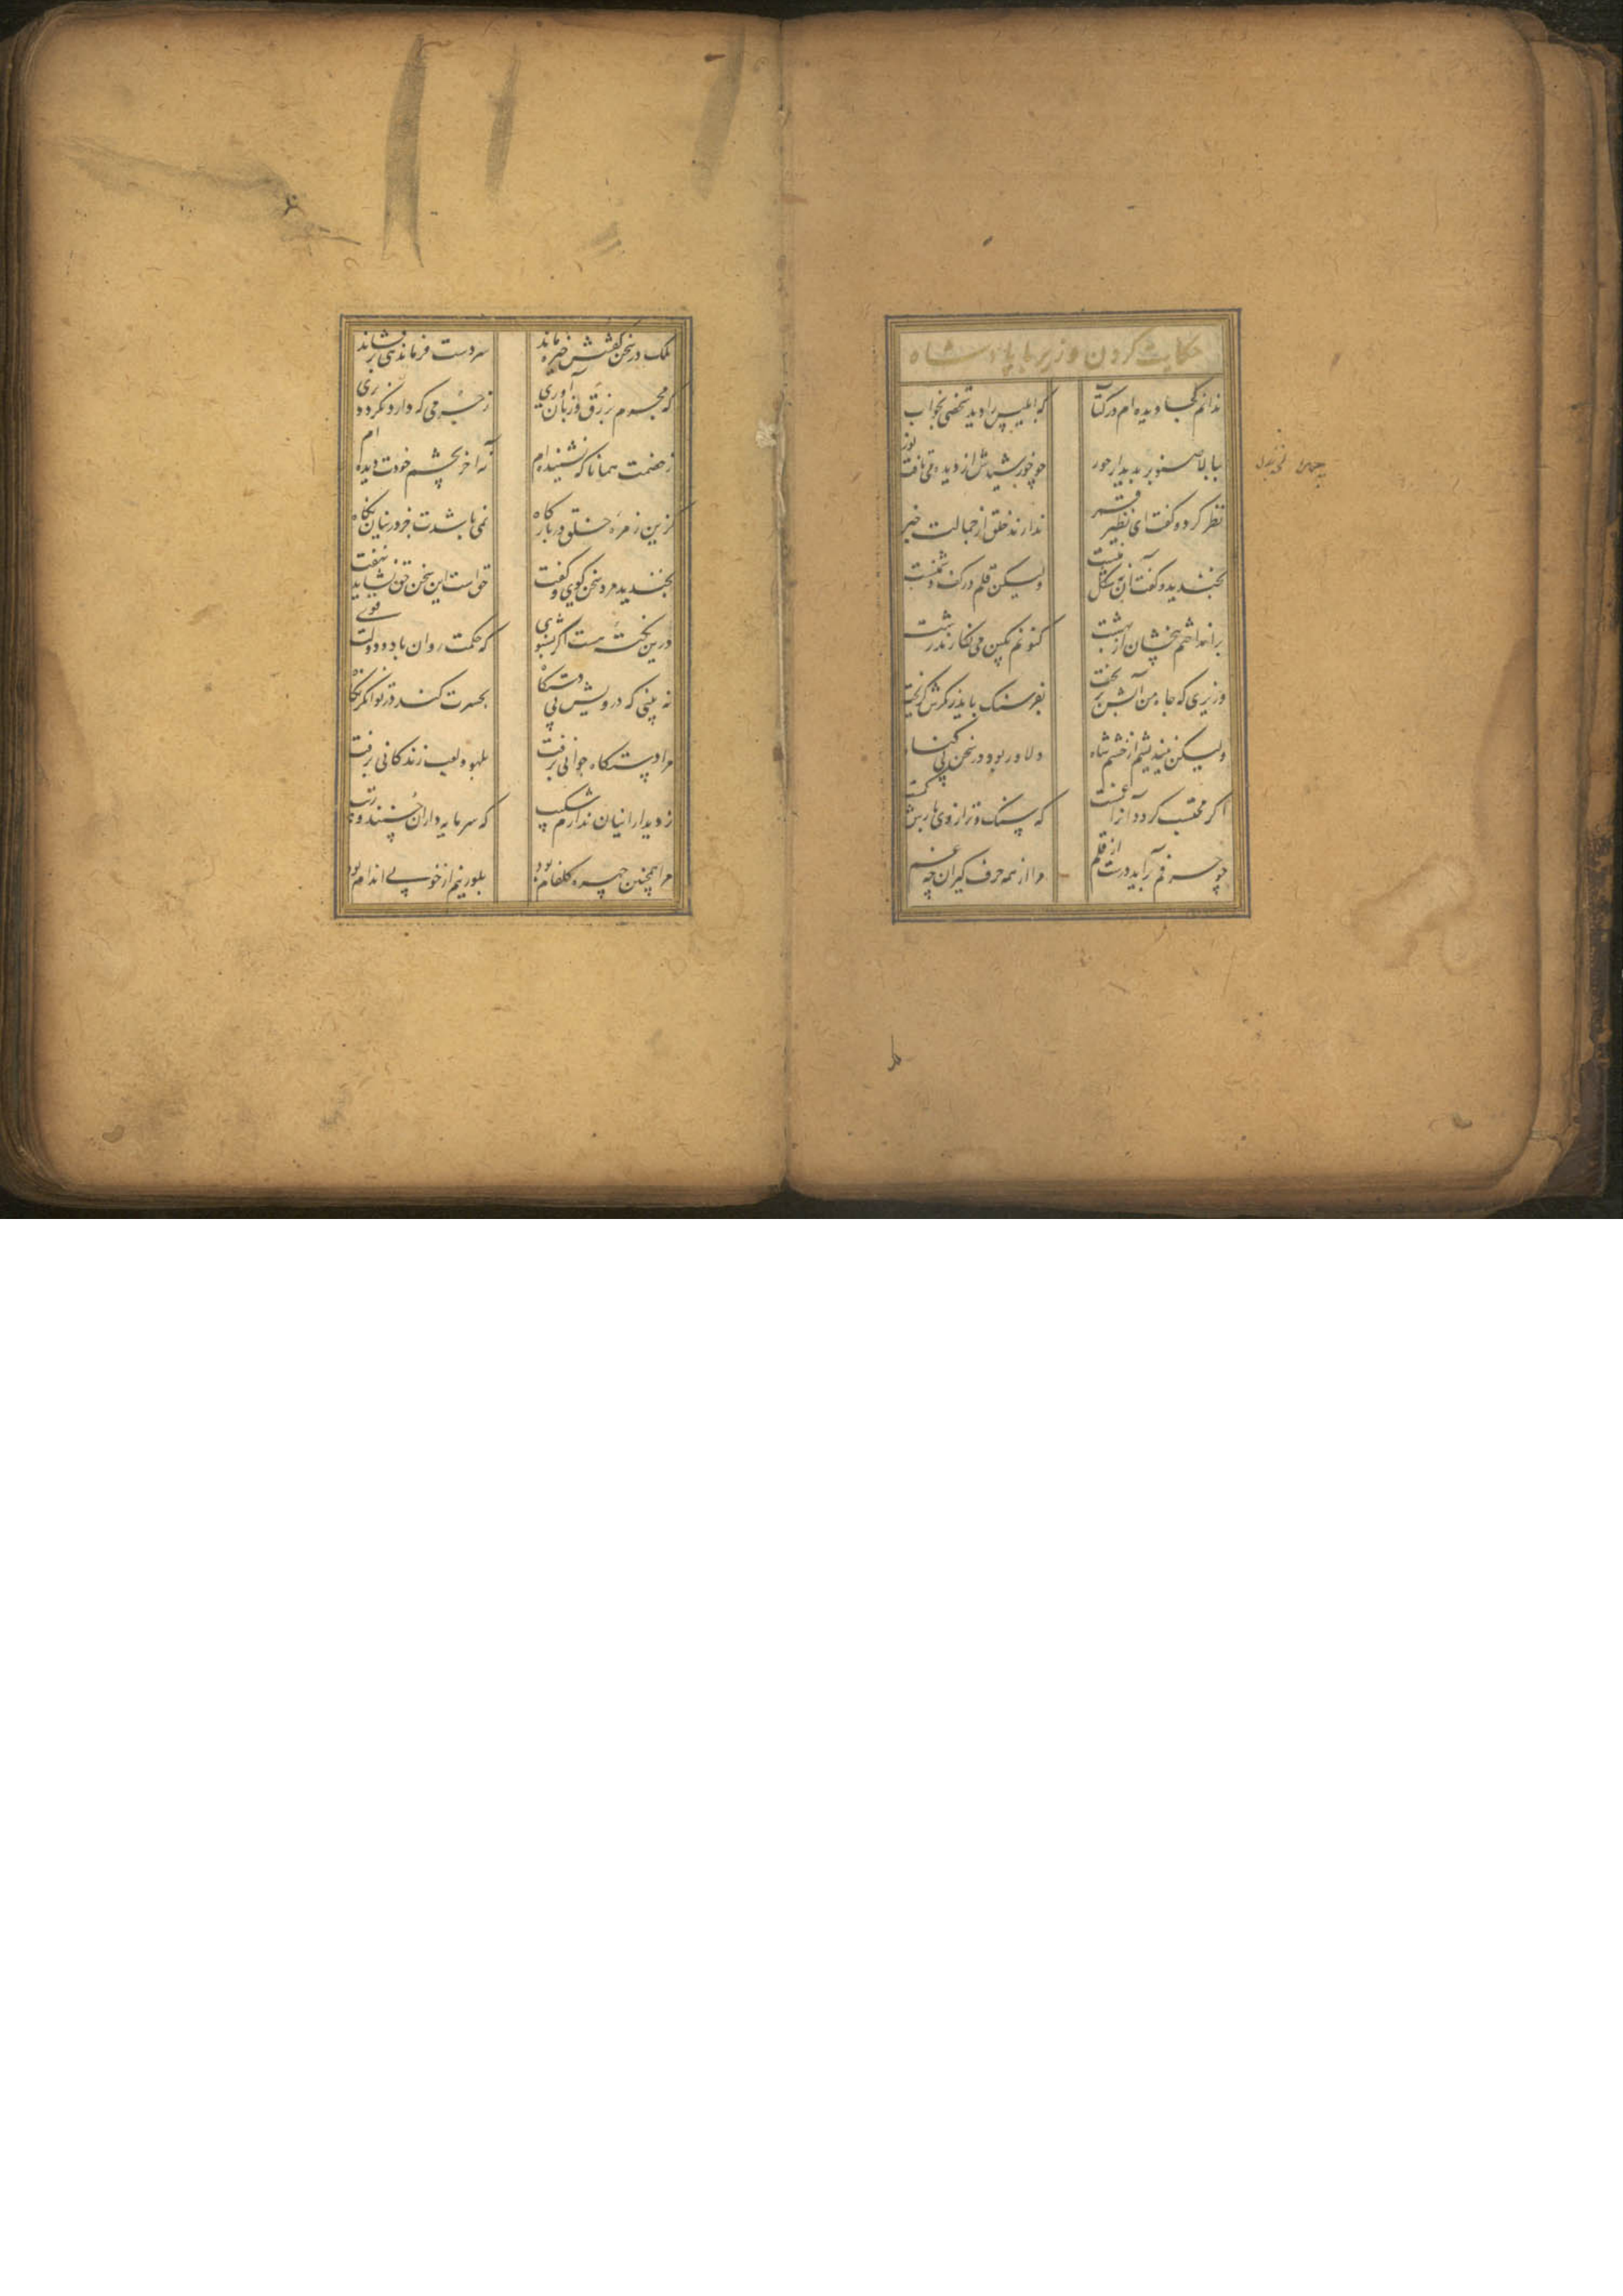 حکایت کردن وزیر با پادشاه
ندانم کجا دیده ام در کتاب که ابلیس را دید شخصی بخواب
ببالا صنوبر بدیدار حور چو خورشیدش از دیده می تافت نور
نظر کرد و گفت ای نظیر قمر ندارند خلق از جمالت خبر
بخندید و گفت آن نه شکل منست ولیکن قلم در کف دشمنست
برانداختم بیخشان از بهشت کنونم بکین می نگارند زشت
وزیری که جاه من آبش بریخت بفرسنگ باید ز مکرش گریخت
ولیکن نیندیشم از خشم شاه دلاور بود در سخن بی گناه
اگر محتسب گردد آنرا غمست که سنگ و ترازوی بارش کمست
چو حرفم برآید درست از قلم مرا از همه حرف گیران چه غم
ملک در سخن گفتنش خیره ماند سر دست فرماندهی بر فشاند
که مجرم بزرق و زبان آوری ز جرمی که دارد نگردد بری
ز خصمت همانا که نشنیده ام نه آخر بچشم خودت دیده ام
کزین زمره خلق در بارگاه نمی باشدت جز در اینان نگاه
بخندید مرد سخن گوی و گفت حق است این سخن حق نشاید نهفت
درین نکته هست اگر بشنوی که حکمت روان باد و دولت قوی
نه بینی که درویش بی دستگاه بحسرت کند در توانگر نگاه
مرا دستگاه جوانی برفت بلهو و لعب زندگانی برفت
ز دیدار اینان ندارم شکیب که سرمایه داران حسنند و زیب
مرا همچنین چهره گلفام بود بلورینم از خوبی اندام بود